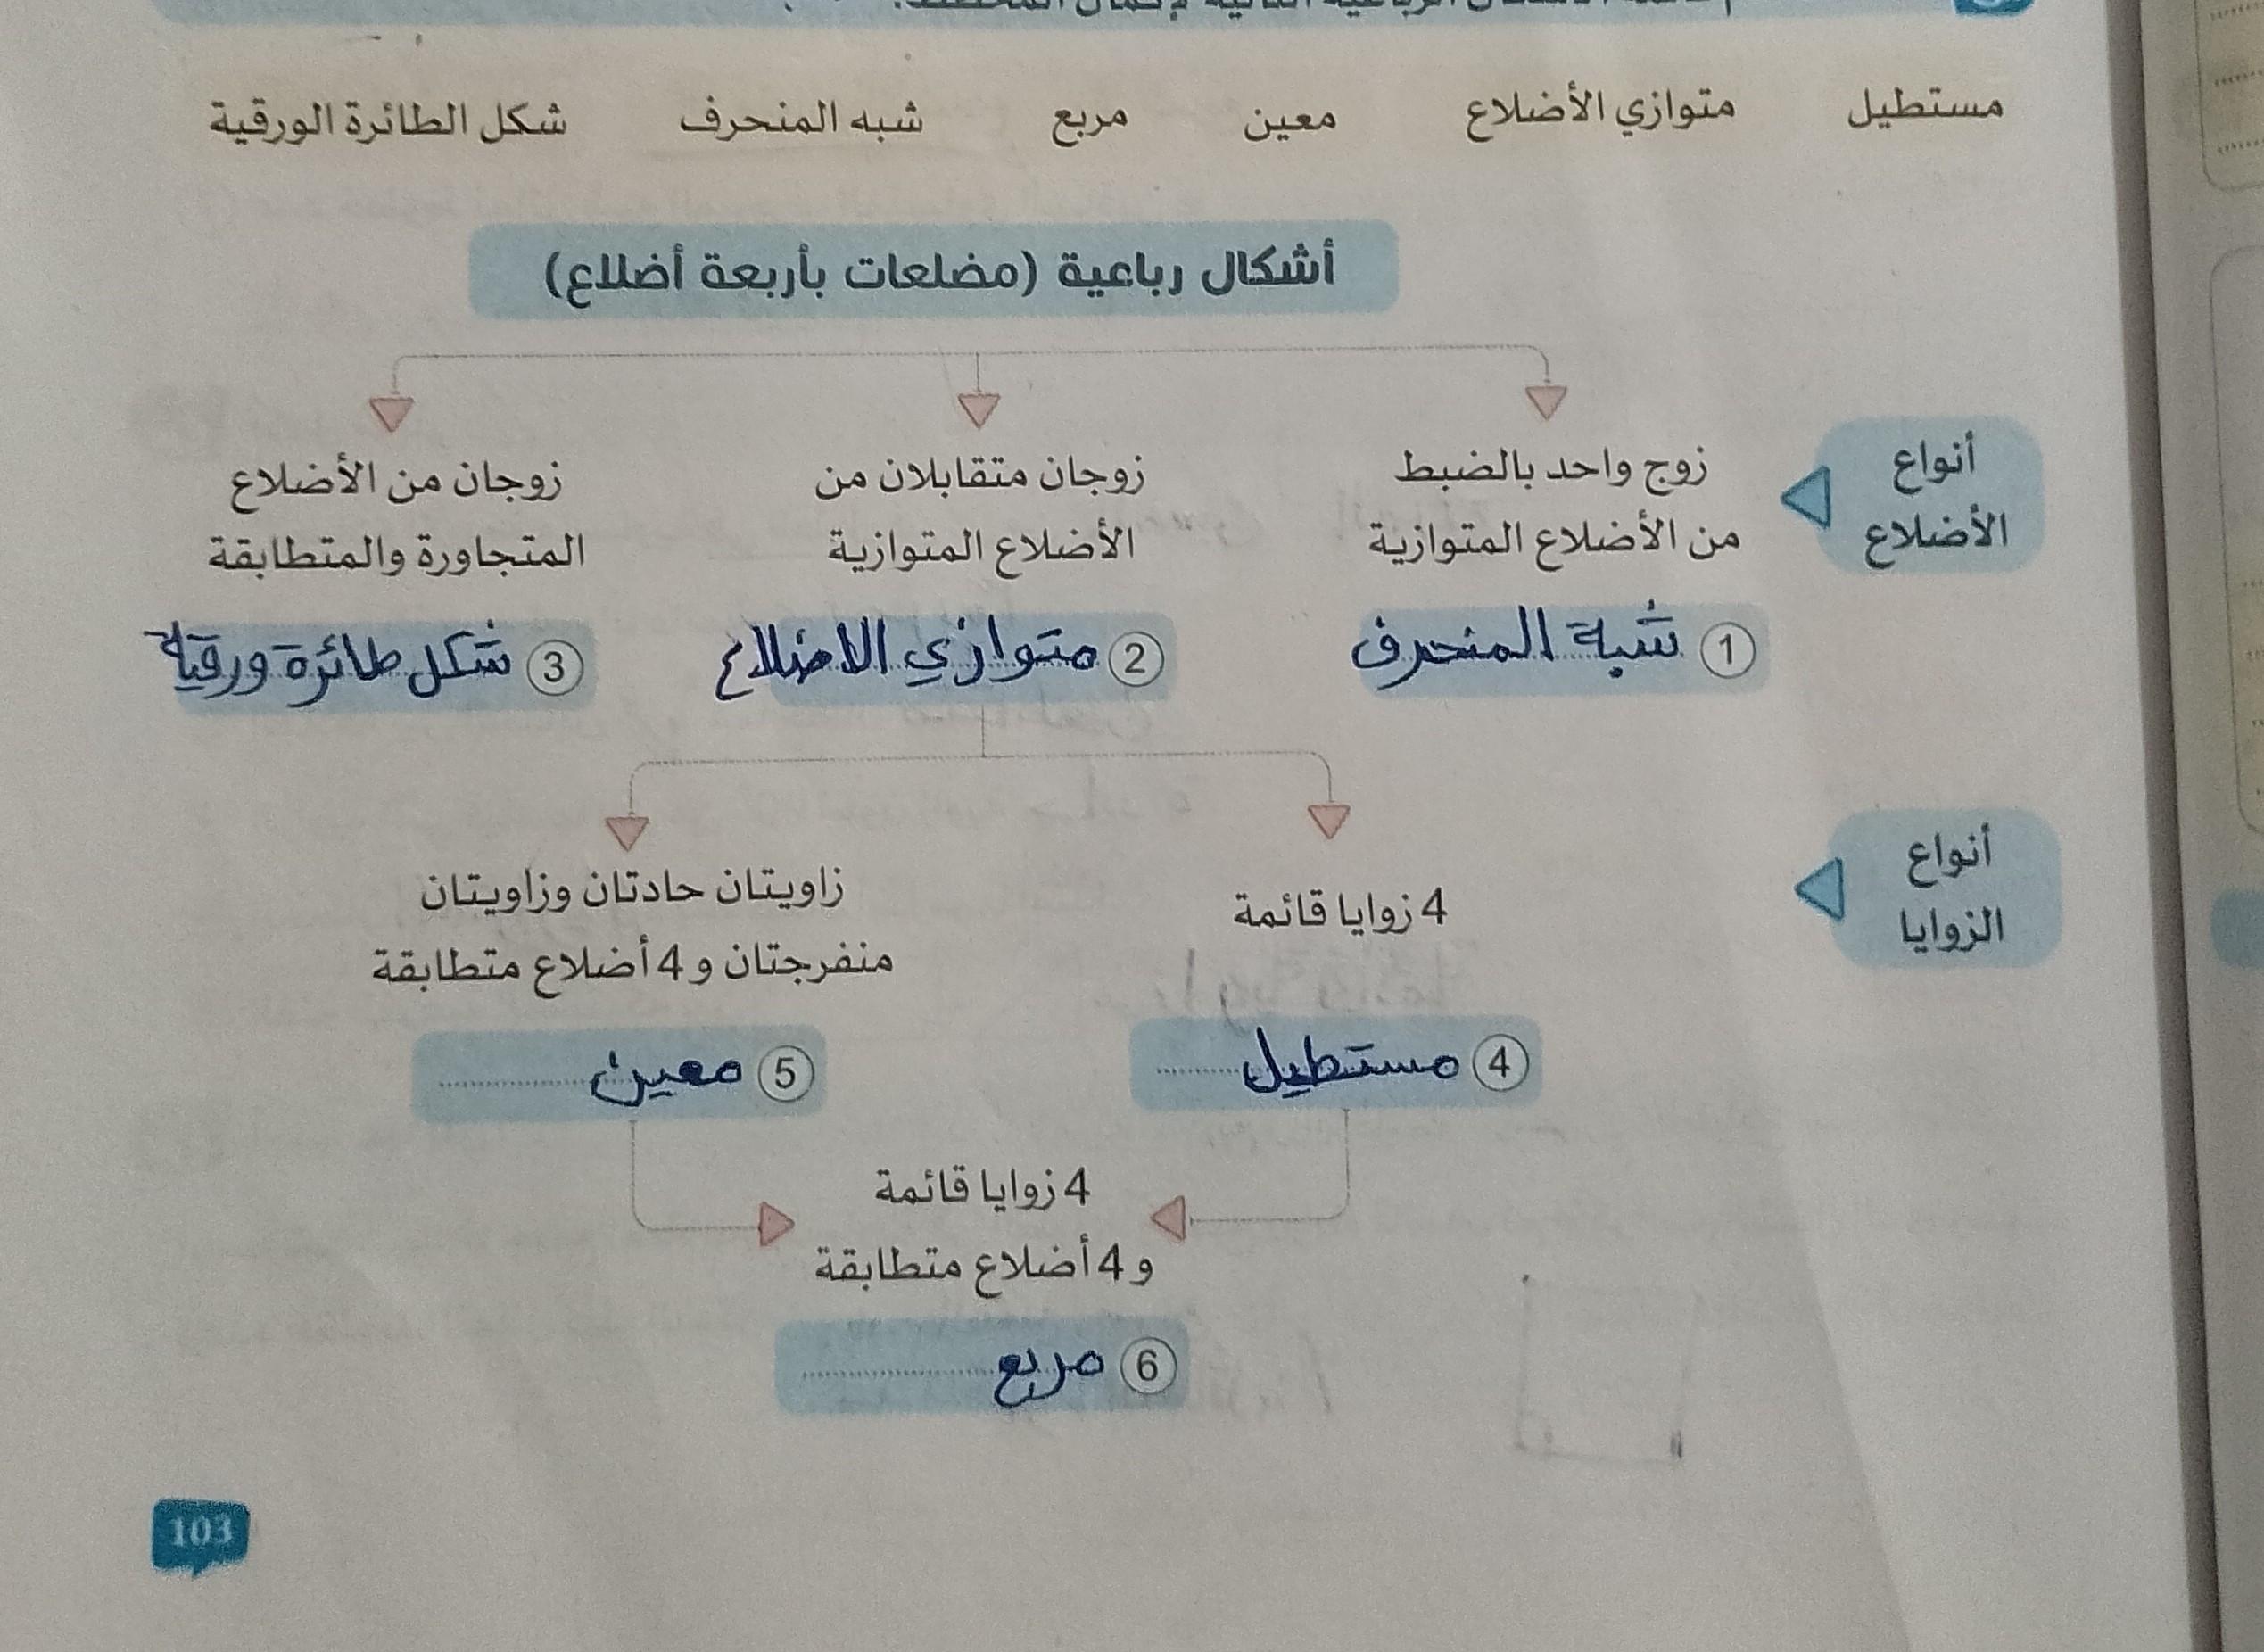 الأشكال الرباعية التالية لإكمال المخطط.
مستطيل متوازي الأضلاع معين مربع شبه المنحرف شكل الطائرة الورقية
أشكال رباعية (مضلعات بأربعة أضلاع)
أنواع
الأضلاع
زوج واحد بالضبط
من الأضلاع المتوازية
① شبة المنحرف
زوجان متقابلان من
الأضلاع المتوازية
② متوازي الاضلاع
زوجان من الأضلاع
المتجاورة والمتطابقة
③ شكل طائرة ورقية
أنواع
الزوايا
4 زوايا قائمة
④ مستطيل
زاويتان حادتان وزاويتان
منفرجتان و 4 أضلاع متطابقة
⑤ معين
4 زوايا قائمة
و 4 أضلاع متطابقة
⑥ مربع
103